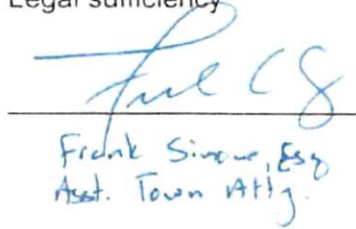 Legal sufficiency
Frank Simone, Esq
Asst. Town Atty.